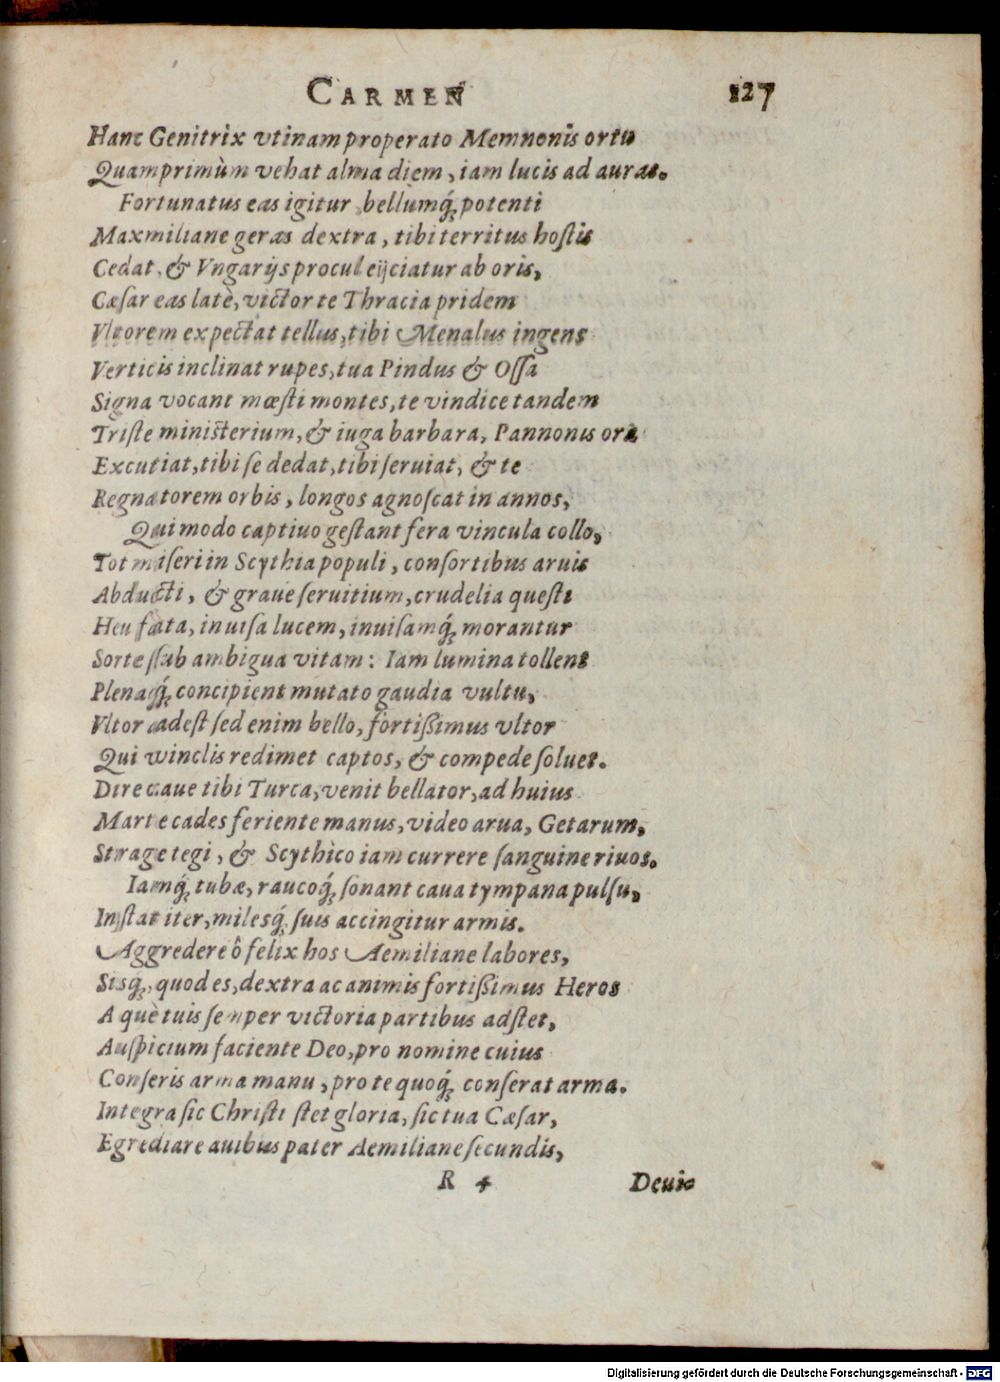 CARMEN 127
Hanc Genitrix vtinam properato Memnonis ortu
Quamprimùm vehat alma diem, iam lucis ad auras.
Fortunatus eas igitur bellumq́; potenti
Maxmiliane geras dextra, tibi territus hostis
Cedat, & Vngarijs procul eijciatur ab oris,
Cæsar eas latè, victor te Thracia pridem
Vltorem expectat tellus, tibi Menalus ingens
Verticis inclinat rupes, tua Pindus & Ossa
Signa vocant mœsti montes, te vindice tandem
Triste ministerium, & iuga barbara, Pannonis ora
Excutiat, tibi se dedat, tibi seruiat, & te
Regnatorem orbis, longos agnoscat in annos,
Qui modo captiuo gestant fera vincula collo,
Tot miseri in Scythia populi, consortibus aruis
Abducti, & graue seruitium, crudelia questi
Heu fata, inuisa lucem, inuisamq́; morantur
Sorte sub ambigua vitam: Iam lumina tollent
Plenaq́; concipient mutato gaudia vultu,
Vltor adest sed enim bello, fortißimus vltor
Qui winclis redimet captos, & compede soluet.
Dire caue tibi Turca, venit bellator, ad huius
Marte cades feriente manus, video arua, Getarum,
Strage tegi, & Scythico iam currere sanguine riuos.
Iamq́; tubæ, raucoq́; sonant caua tympana pulsu,
Instat iter, milesq́; suis accingitur armis.
Aggredere ô felix hos Aemiliane labores,
Sisq́; quod es, dextra ac animis fortißimus Heros
A què tuis semper victoria partibus adstet,
Auspicium faciente Deo, pro nomine cuius
Conseris arma manu, pro te quoq́; conserat arma.
Integra sic Christi stet gloria, sic tua Cæsar,
Egrediare auibus pater Aemiliane secundis,
R 4 Deuic
Digitalisierung gefördert durch die Deutsche Forschungsgemeinschaft - DFG